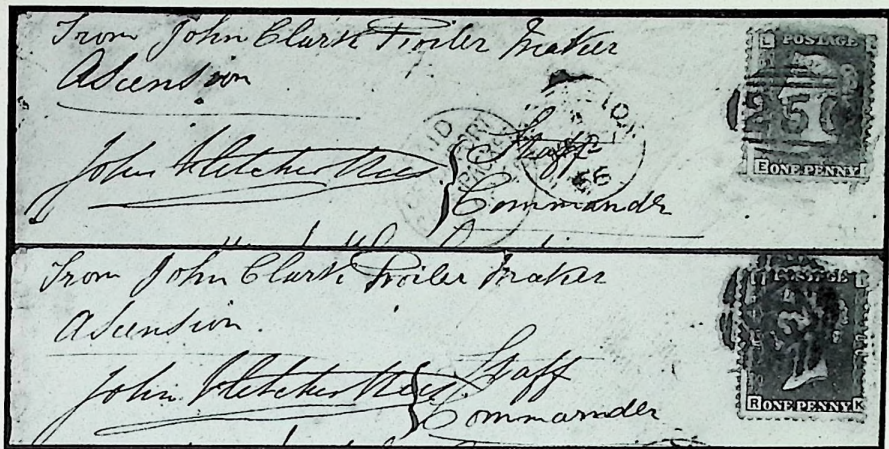 From John Clark Boiler Maker
Ascension
John Fletcher Rees } Staff
Commander
L POSTAGE
250
E ONE PENNY
PAID
66
From John Clark Boiler Maker
Ascension
John Fletcher Rees } Staff
Commander
POSTAGE
R ONE PENNY K